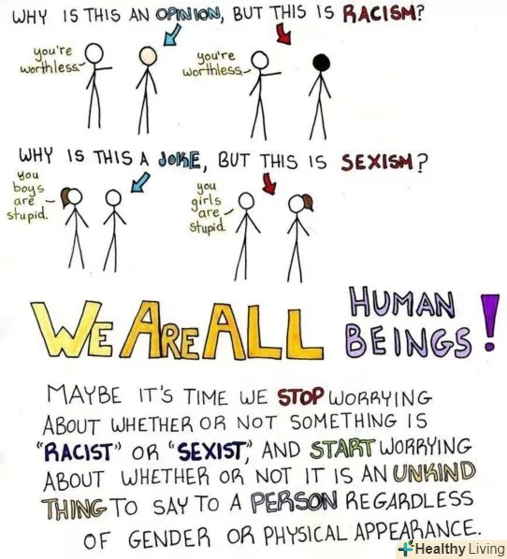 WHY IS THIS AN OPINION, BUT THIS IS RACISM?
you're
worthless
you're
worthless
WHY IS THIS A JOKE, BUT THIS IS SEXISM?
you
boys
are
stupid.
you
girls
are
stupid
WE ARE ALL HUMAN
BEINGS!
MAYBE IT'S TIME WE STOP WORRYING
ABOUT WHETHER OR NOT SOMETHING IS
"RACIST" OR "SEXIST," AND START WORRYING
ABOUT WHETHER OR NOT IT IS AN UNKIND
THING TO SAY TO A PERSON REGARDLESS
OF GENDER OR PHYSICAL APPEARANCE.
Healthy Living